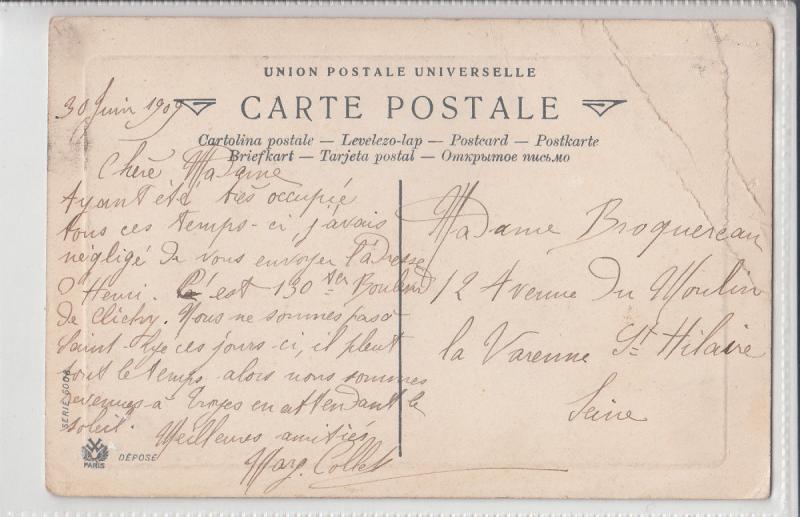 UNION POSTALE UNIVERSELLE
CARTE POSTALE
Cartolina postale — Levelezo-lap — Postcard — Postkarte
Briefkart — Tarjeta postal — Открытое письмо
30 Juin 1909
Chère Madame
Ayant été très occupée
tous ces temps-ci, j'avais
négligé de vous envoyer l'adresse
d'Henri. C'est 130 ter Boulevd
de Clichy. Nous ne sommes pas à
Saint- ces jours-ci, il pleut
tout le temps, alors nous sommes
revenues à Troyes en attendant le
soleil.
Meilleures amitiés
Marg. Collet
Madame Broquereau
12 Avenue du Moulin
la Varenne St Hilaire
Seine
SERIE 600
PARIS
DÉPOSÉ